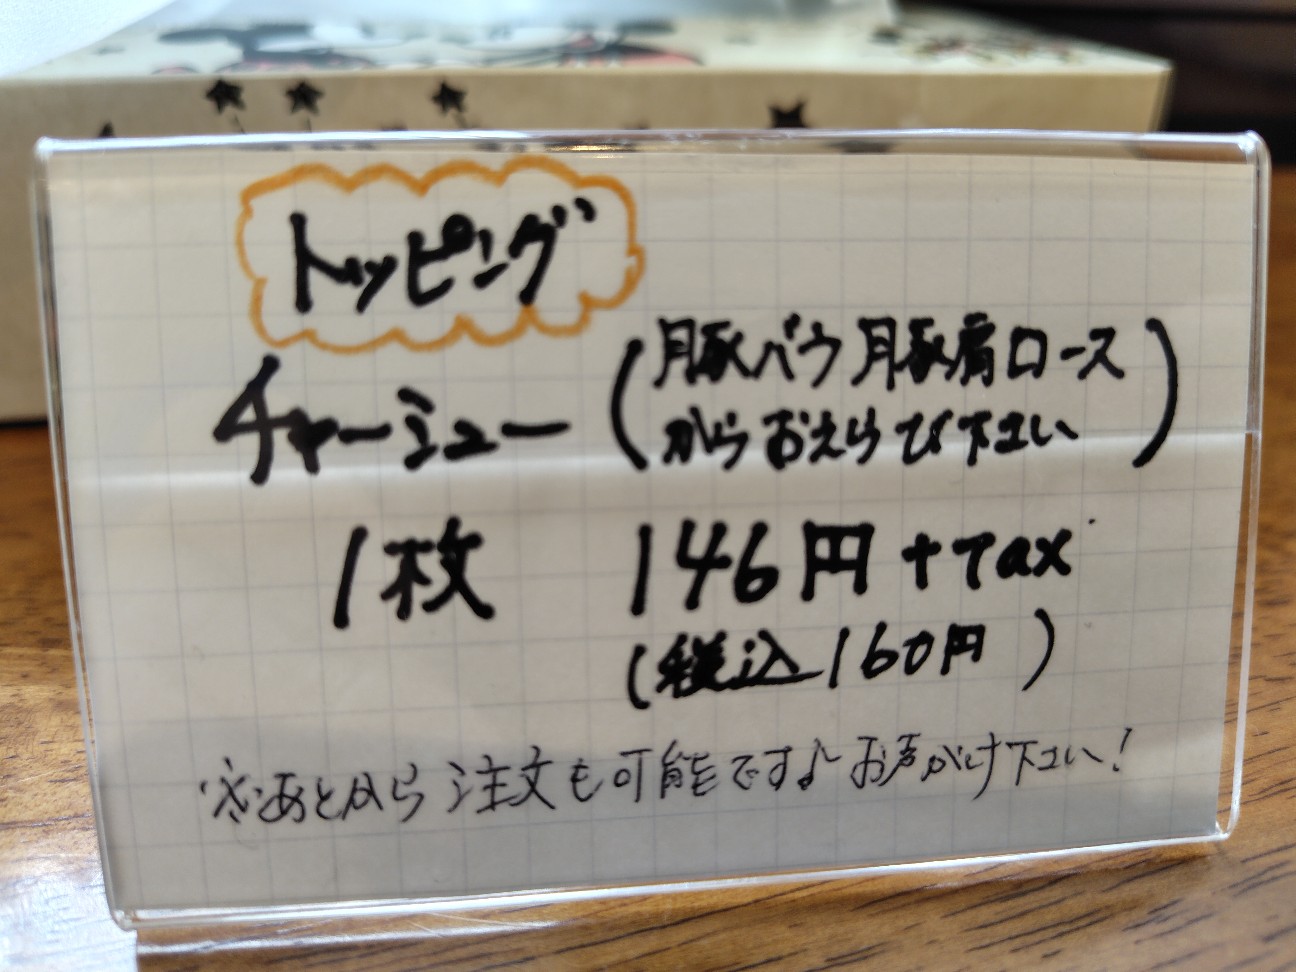 トッピング
チャーシュー
(豚バラ 豚肩ロース
からおえらび下さい)
1枚 146円+Tax
(税込160円)
あとから注文も可能です♪ お声がけ下さい!